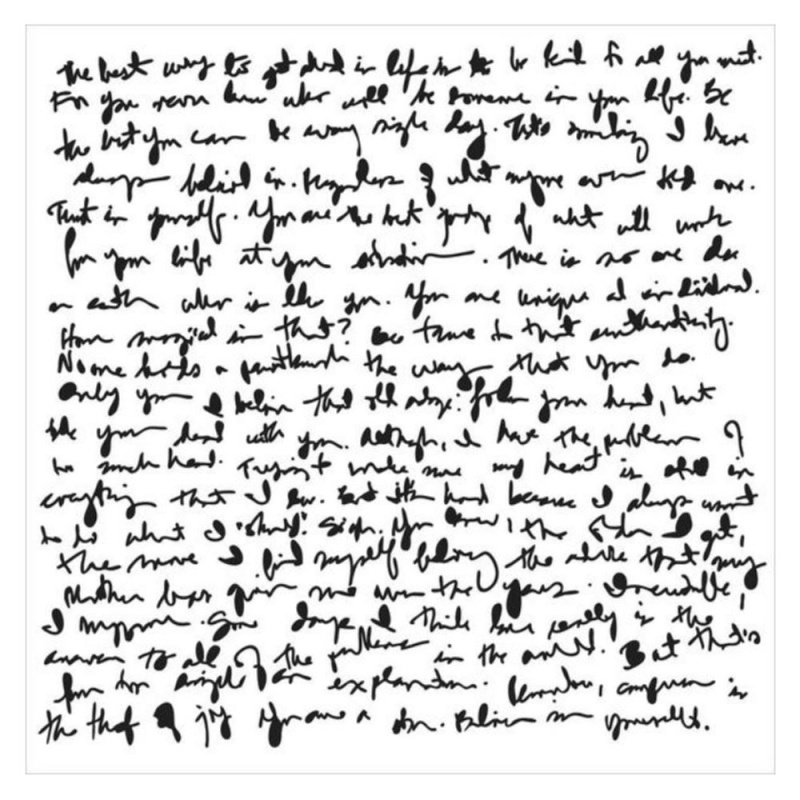 The best way to get ahead in life is to be kind to all you meet.
For you never know who will be someone in your life. Be
the best you can be every single day. That's something I have
always believed in. Regardless of what anyone ever told me.
That is yourself. You are the best judge of what will work
for your life at your. There is no one else
on earth who is like you. You are unique and individual.
How magical is that? Be true to that authenticity.
No one holds a the way that you do.
Only you I believe that old adage: follow your heart, but
take your head with you. Although, I have the problem of
too much heart. Trying to make sure my heart is still in
everything that I do. But it's hard because I always want
to do what I "should". Sigh. You know, the older I get,
the more I find myself believing the advice that my
Mother has given me over the years. Incredible,
I suppose. Some days I think love really is the
answer to all of the problems in the world. But that's
far too simple of an explanation. Remember, comparison is
the thief of joy. You are a star. Believe in yourself.